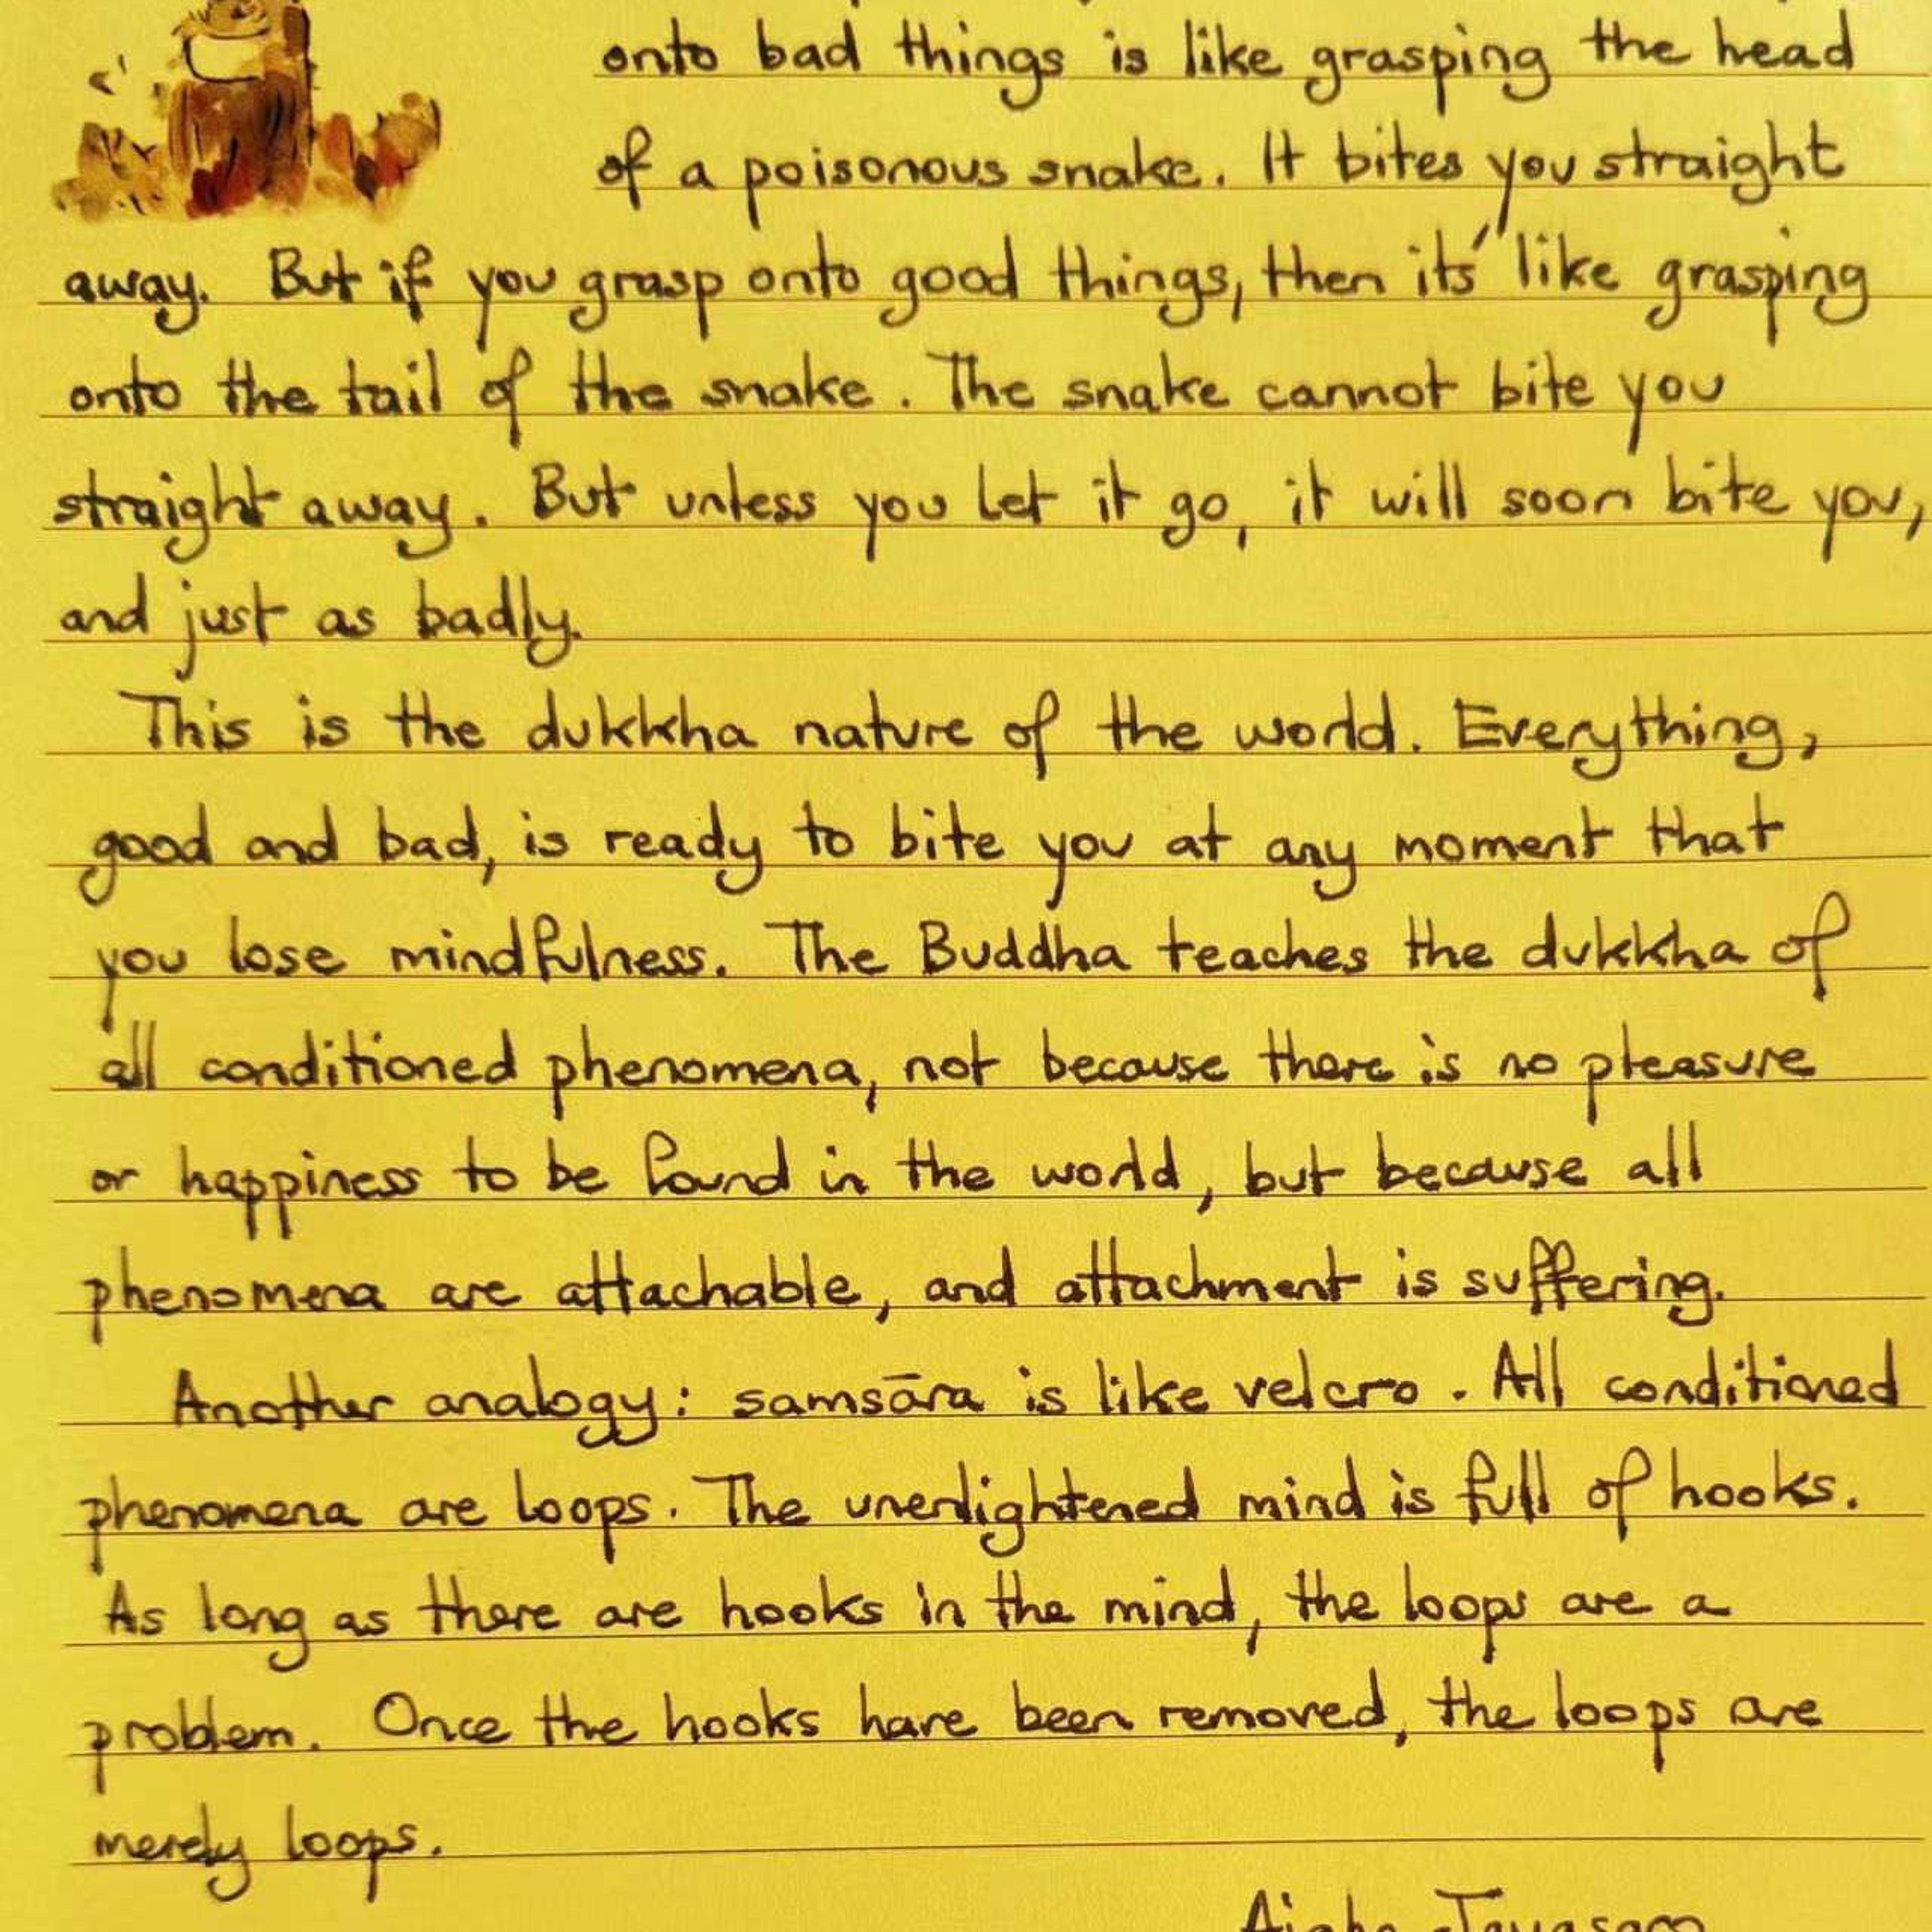 onto bad things is like grasping the head
of a poisonous snake. It bites you straight
away. But if you grasp onto good things, then its' like grasping
onto the tail of the snake. The snake cannot bite you
straight away. But unless you let it go, it will soon bite you,
and just as badly.
This is the dukkha nature of the world. Everything,
good and bad, is ready to bite you at any moment that
you lose mindfulness. The Buddha teaches the dukkha of
all conditioned phenomena, not because there is no pleasure
or happiness to be found in the world, but because all
phenomena are attachable, and attachment is suffering.
Another analogy: samsāra is like velcro. All conditioned
phenomena are loops. The unenlightened mind is full of hooks.
As long as there are hooks in the mind, the loops are a
problem. Once the hooks have been removed, the loops are
merely loops.